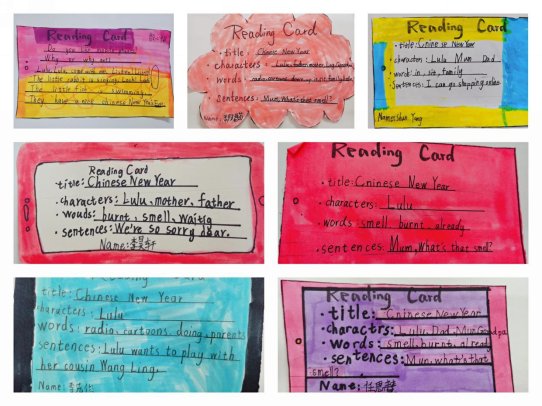 Reading Card
Do you like
Why or why not?
Lulu
The little rabbit is
The little fish is swimming.
They have a nice Chinese New Year.
Reading Card
·title: Chinese New Year
·characters: Lulu, father, mother,
·words: radio cartoons
·sentences: Mum, What's that smell?
Name:
Reading Card
·title: Chinese New Year
·characters: Lulu Mum Dad
·word: in, sit, family
·Sentences: I can go shopping
Name:
Reading Card
title: Chinese New Year
·characters: Lulu, mother, father
·wouds: burnt, smell, Waitig
·sentences: We're so sorry dear.
Name:
Reading Card
·title: Chinese New Year
·characters: Lulu
·words: smell, burnt, already
·sentences: Mum, What's that smell?
Reading Card
title: Chinese New Year
characters: Lulu
words: radio, cartoons, doing, parents
sentences: Lulu wants to play with
her cousin Wang Ling.
Name:
Reading Card
·title: Chinese New Year
·charactrs: Lulu, Dad, Mum, Grandpa
·Words: smell, burnt, alread
·sentences: Mum, what's that
smell?
Name: 任思睿